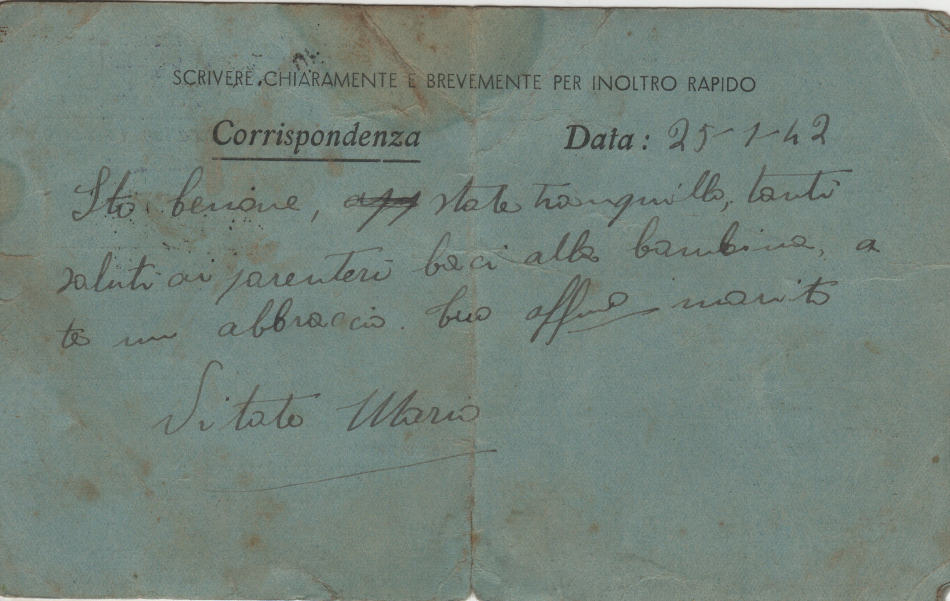 SCRIVERE CHIARAMENTE E BREVEMENTE PER INOLTRO RAPIDO
Corrispondenza Data: 25-1-42
Sto benone, state tranquilla, tanti
saluti ai parenteri baci alla bambina, a
te un abbraccio. tuo affmo marito
Vitato Mario